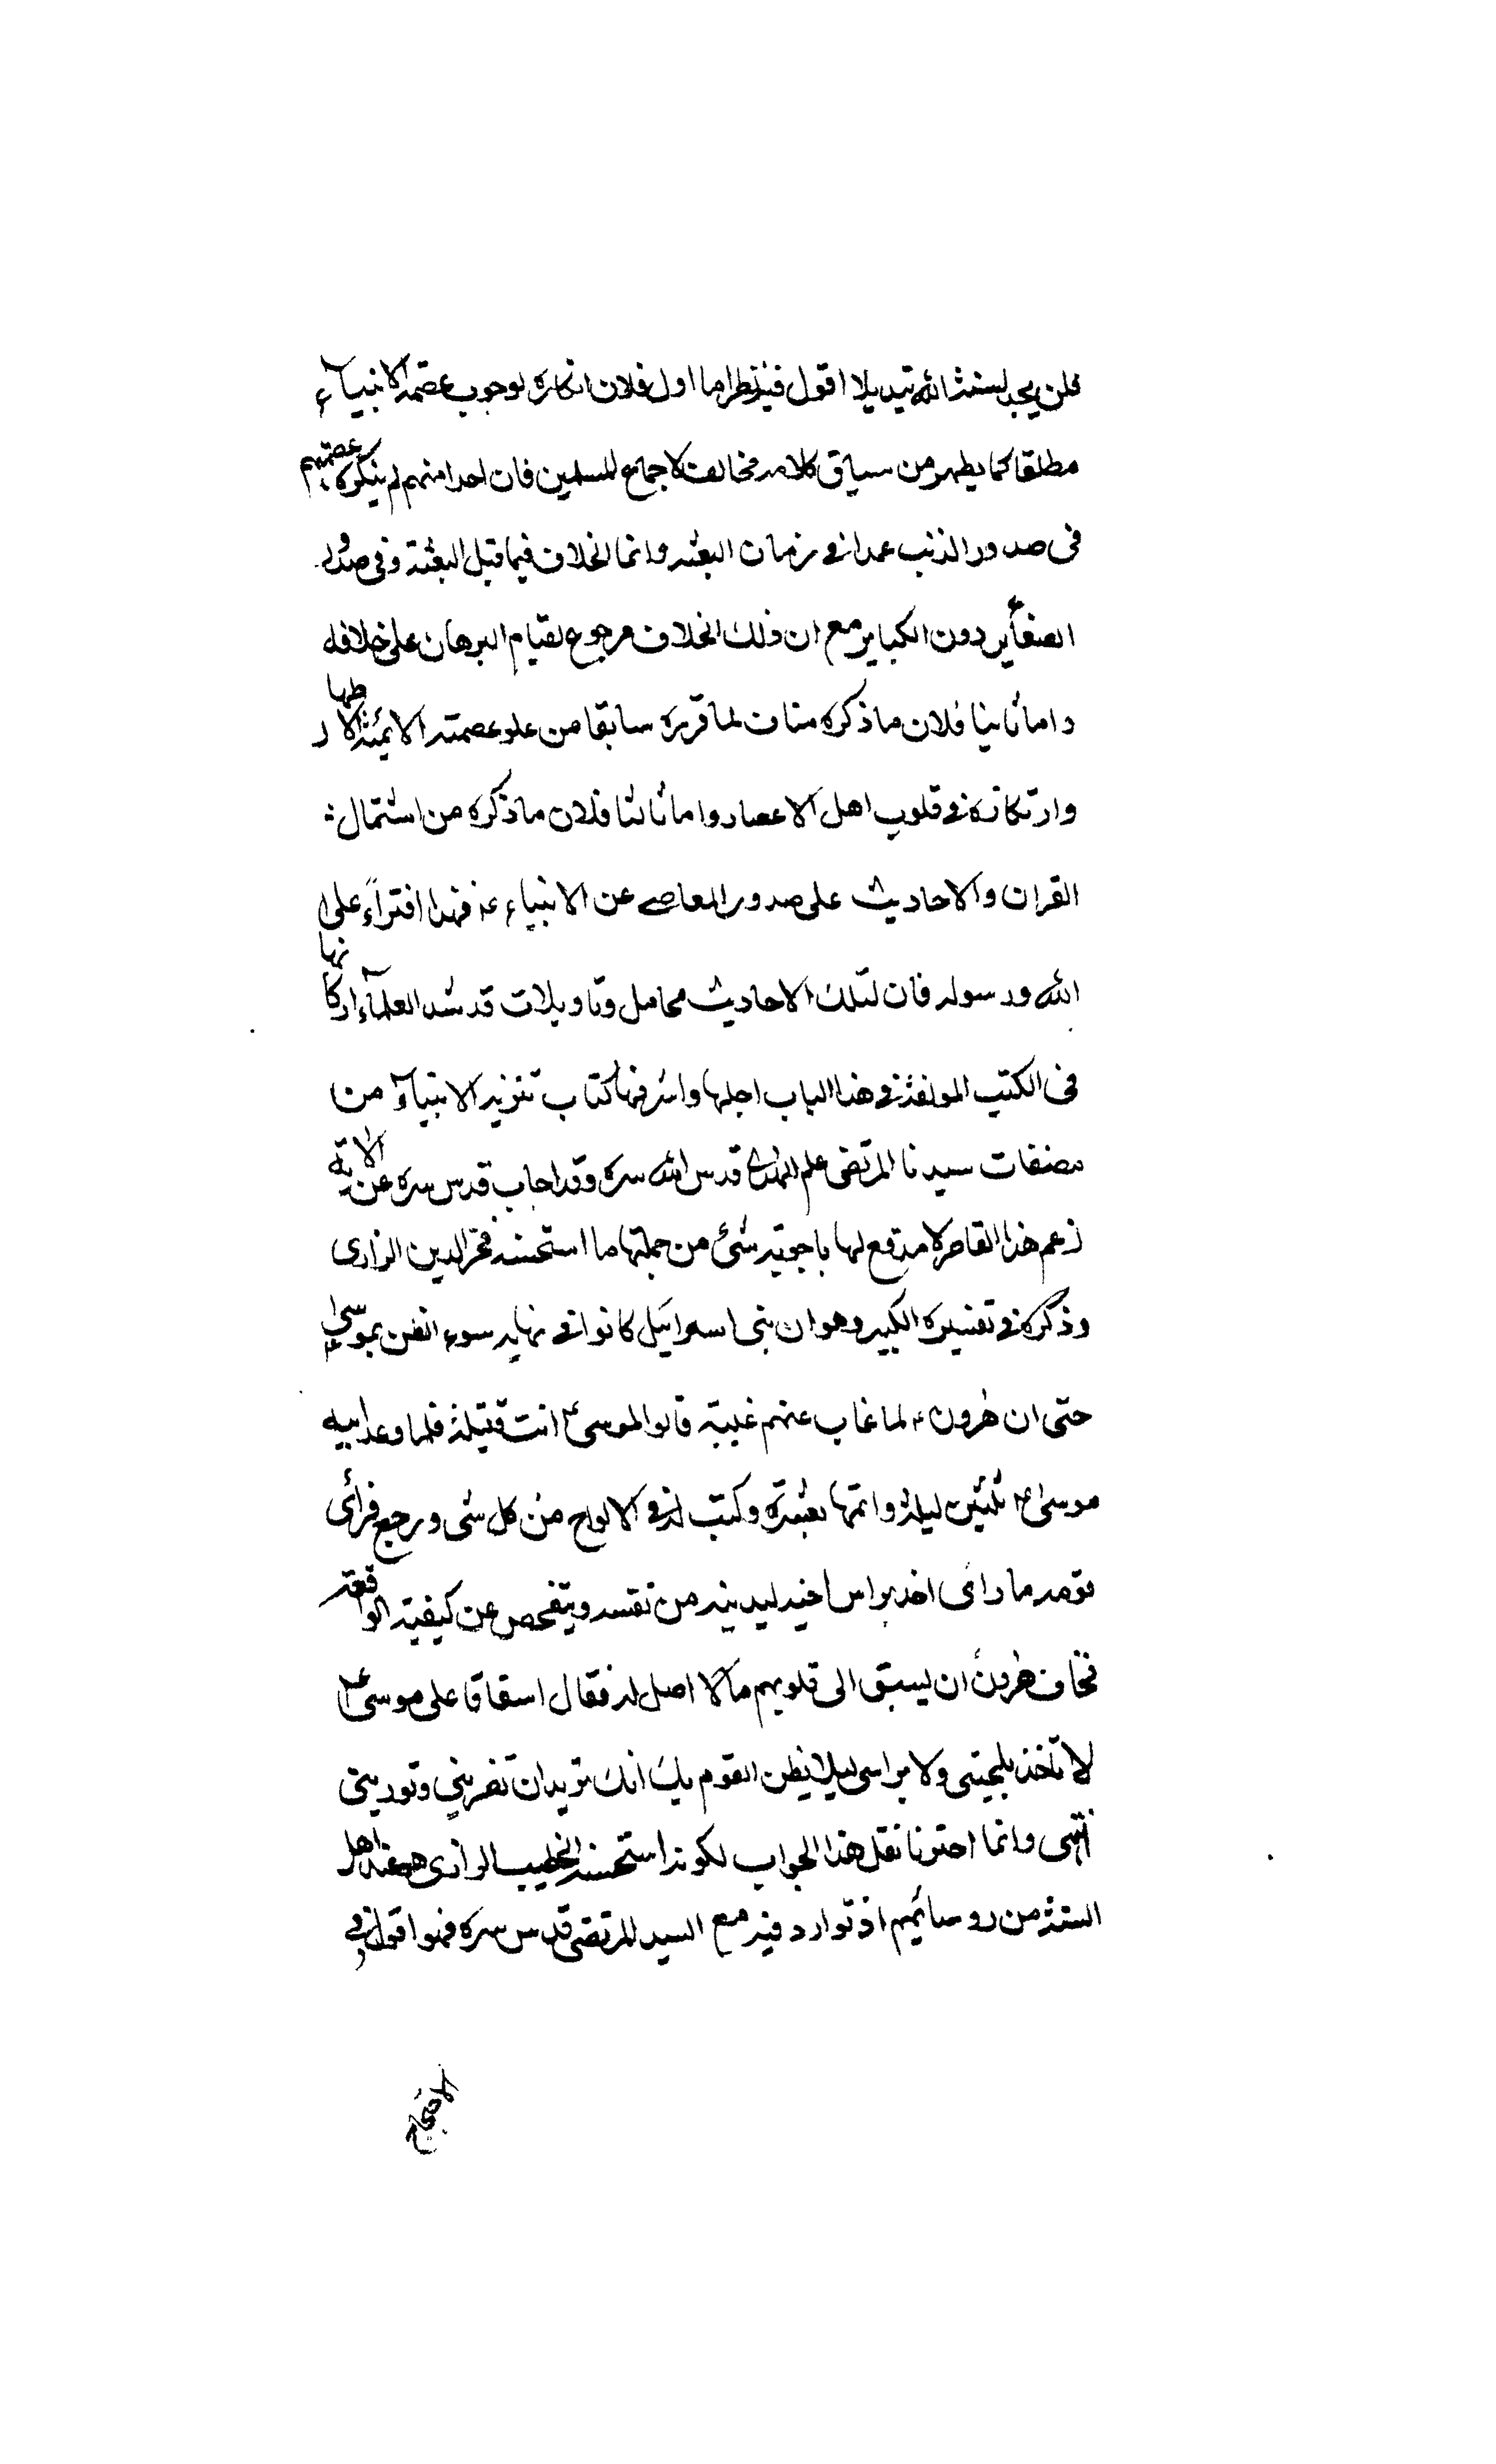 فلن يجد لسنة الله تبديلا اقول فيه نظر اما اولا فلان انكاره لوجوب عصمة الانبياء
مطلقا كما يظهر من سياق كلامه مخالف لاجماع المسلمين فان احدا منهم لم ينكر عصمتهم
فى صدور الذنب عمدا فى زمان البعثه وانما الخلاف فيما قبل البعثة وفى صدور
الصغاير دون الكباير مع ان ذلك الخلاف مرجوع لقيام البرهان على خلافه
واما ثانيا فلان ما ذكره مناف لما قرره سابقا من علو عصمته الائمة الاطهار
وارتكازه فى قلوب اهل الاعصار واما ثالثا فلان ما ذكره من اشتمال
القران والاحاديث على صدور المعاصى عن الانبياء ع فهذا افتراء على
الله ورسوله فان لتلك الاحاديث محامل وتاويلات قد شد العلماء اركانها
فى الكتب المولفة فى هذا الباب اجلها واشرفها كتاب تنزيه الانبياء من
مصنفات سيدنا المرتضى علم الهدى قدس الله سره وقد اجاب قدس سره عن الاية
زعم هذا القاصر لا مدفع لها باجوبة شئ من جملتها ما استحسنه فخر الدين الرازى
وذكره فى تفسيره الكبير وهو ان بنى اسرائيل كانوا فى نهاية سوء الظن بموسى ع
حتى ان هرون ع لما غاب عنهم غيبة قالوا لموسى ع انت قتيلة فلما وعد الله
موسى ع ثلثين ليلة واتمها بعشرة وكتب له فى الالواح من كل شى ورجع فرأى
قومه ما راى اخذ براس اخيه ليدنيه من نفسه ويتفحص عن كيفية الواقعة
فخاف هرون ان يسبق الى قلوبهم ما لا اصل له فقال اسفاقا على موسى ع
لا تاخذ بلحيتى ولا براسى ليلا يظن القوم بك انك تريد ان تضربنى وتوذينى
انتهى وانما اخترنا نقل هذا الجواب لكونه استحسنه الخطيب الرازى هو عند اهل
السنة من روسائهم اذ توارد فيه مع السيد المرتضى قدس سره فهو اقوى فى